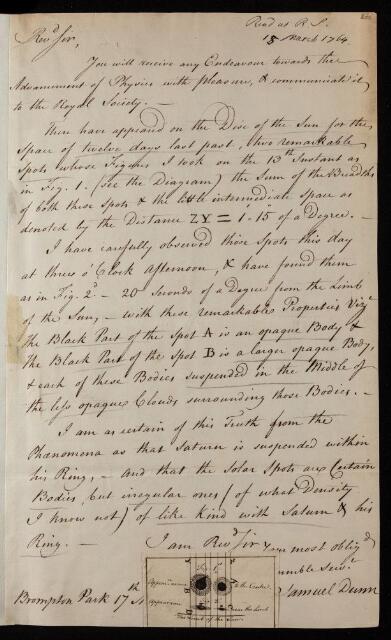 Read at R S.
15 March 1764
Rev.d Sir,
You will receive any Endeavour towards the
Advancement of Physics with pleasure, & communicate it
to the Royal Society. —
There have appeared on the Disc of the Sun for the
space of twelve days last past, two remarkable
Spots whose Figures I took on the 13th Instant as
in Fig. 1. (see the Diagram) the Sum of the Breadths
of both these Spots & the little intermediate space as
denoted by the Distance ZY = 1-15 of a Degree. —
I have carefully observed those Spots this day
at three o'Clock Afternoon, & have found them
as in Fig. 2d — 20 Seconds of a Degree from the Limb
of the Sun, — with these remarkable Properties Vizt
the Black Part of the Spot A is an opaque Body, &
the Black Part of the Spot B is a larger opaque Body,
& each of these Bodies suspended in the Middle of
the less opaque Clouds surrounding those Bodies. —
I am as certain of this Truth from the
Phænomena as that Saturn is suspended within
his Ring, — and that the Solar Spots are Certain
Bodies, but irregular ones (of what Density
I know not) of like Kind with Saturn & his
Ring. —
I am Rev.d Sir Your most oblig.d
humble Serv.t
Samuel Dunn
Brompton Park 17th
Appearance
to the Center
A
B
Appearance